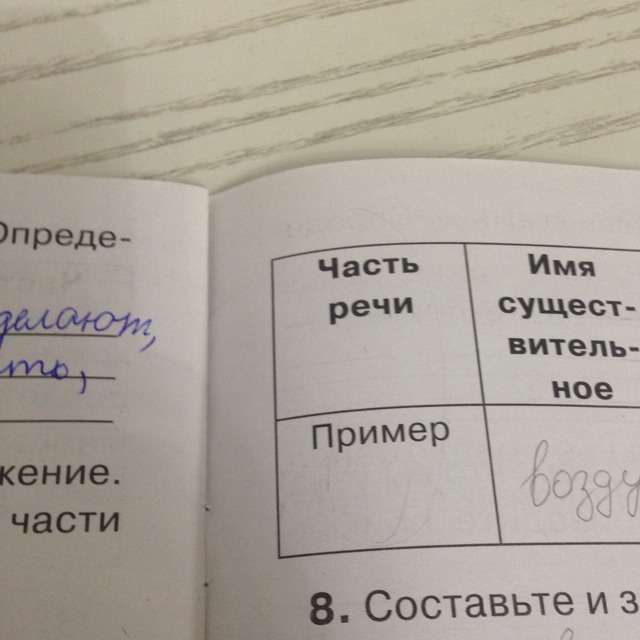 Опреде-
делают,
жение.
части
Часть речи
Имя сущест-
витель-
ное
Пример
возду
8. Составьте и з